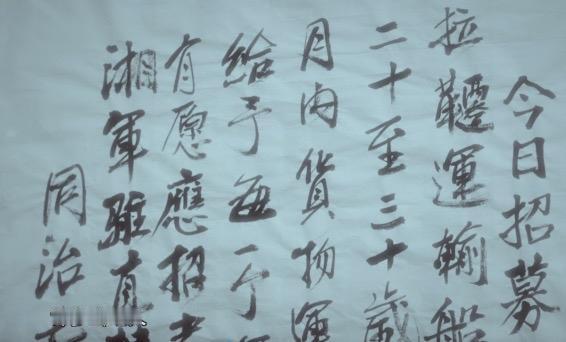 今日招募
拉韆運輸船
二十至三十歲
月内货物運
给予每一个
有愿應招者
湘軍雖真
同治